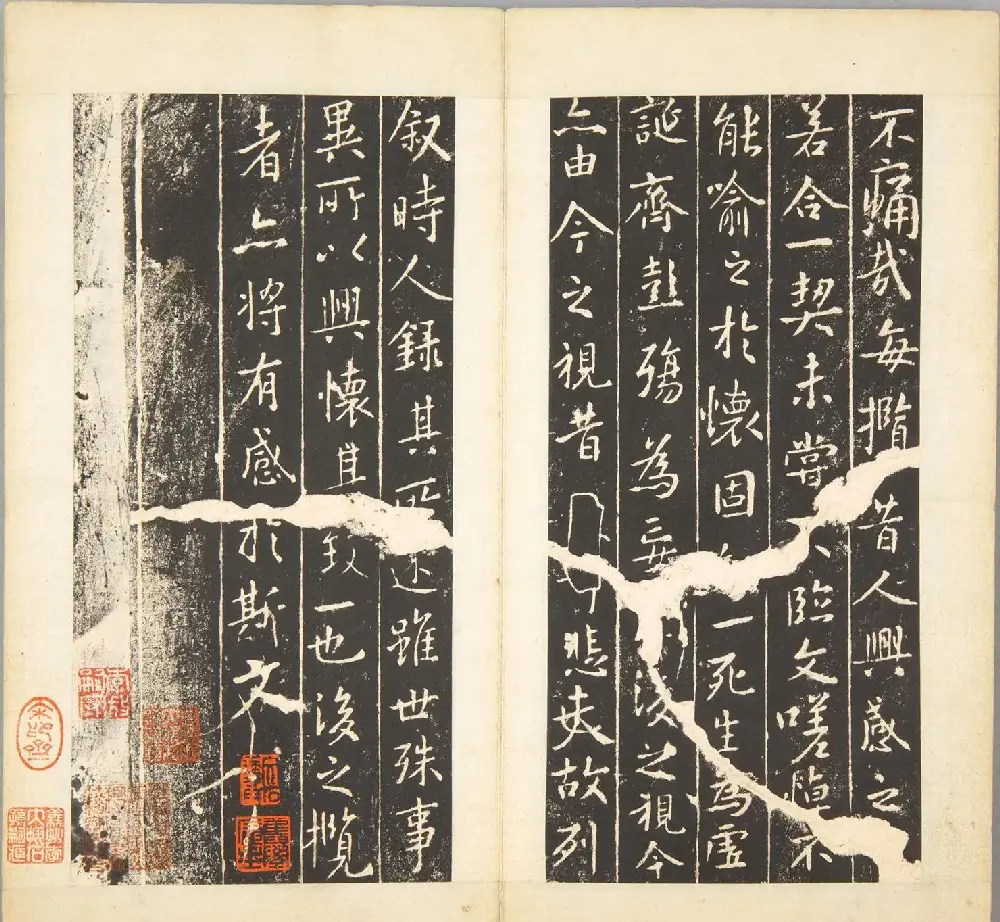 不痛哉每攬昔人興感之
若合一契未嘗不臨文嗟悼不
能喻之於懷固一死生為虛
誕齊彭殤為妄後之視今
亦由今之視昔悲夫故列
叙時人錄其所述雖世殊事
異所以興懷其致一也後之攬
者亦將有感於斯文